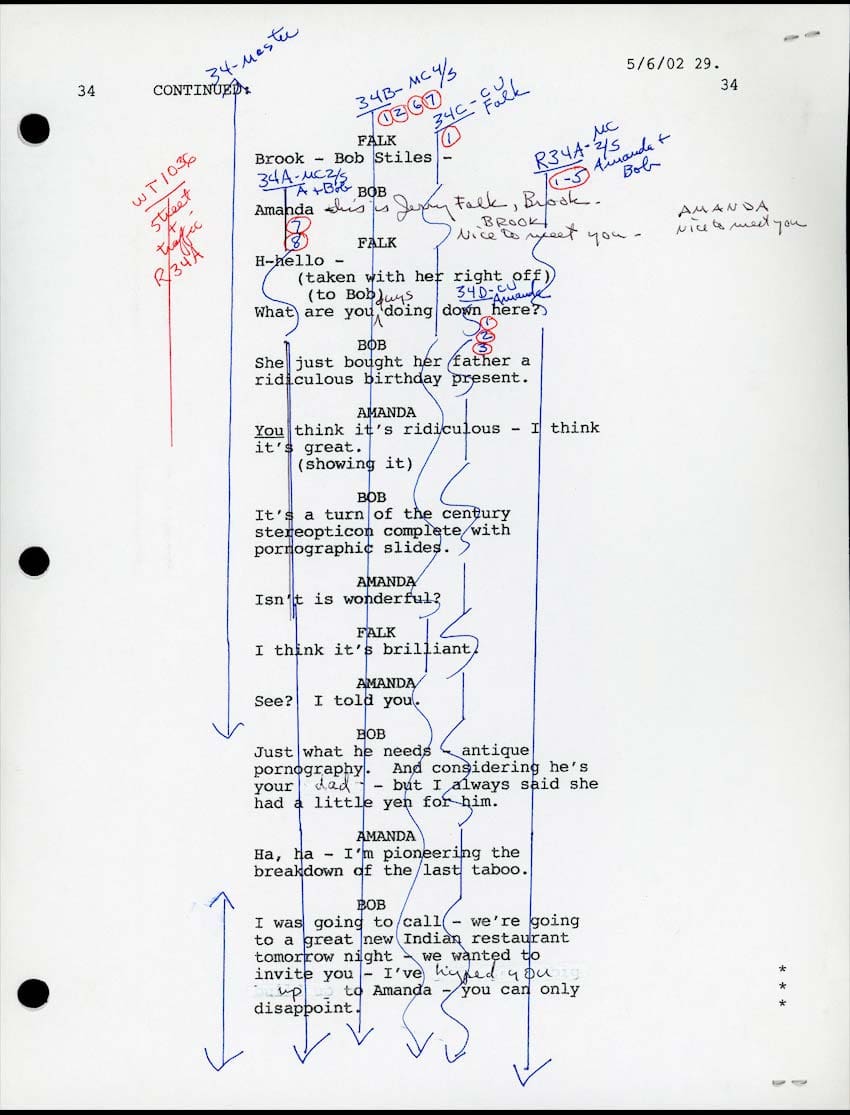 34-Master
5/6/02 29.
34 CONTINUED: 34
34B-MC4/S
1 2 6 7
34C-CU
Falk
1
FALK
Brook - Bob Stiles -
R34A-MC
2/S
Amanda +
Bob
1-5
WT1036
street
+
traffic
R34A
34A-MC2/S
A + Bob
7
8
BOB
Amanda this is Jerry Falk, Brook.
BROOK
Nice to meet you -
AMANDA
Nice to meet you
FALK
H-hello -
(taken with her right off)
(to Bob)
34D-CU
Amanda
1
2
3
guys
What are you doing down here?
BOB
She just bought her father a
ridiculous birthday present.
AMANDA
You think it's ridiculous - I think
it's great.
(showing it)
BOB
It's a turn of the century
stereopticon complete with
pornographic slides.
AMANDA
Isn't is wonderful?
FALK
I think it's brilliant.
AMANDA
See? I told you.
BOB
Just what he needs - antique
pornography. And considering he's
your dad - but I always said she
had a little yen for him.
AMANDA
Ha, ha - I'm pioneering the
breakdown of the last taboo.
BOB
I was going to call - we're going
to a great new Indian restaurant
tomorrow night - we wanted to
invite you - I've hyped you *
up to Amanda - you can only *
disappoint. *